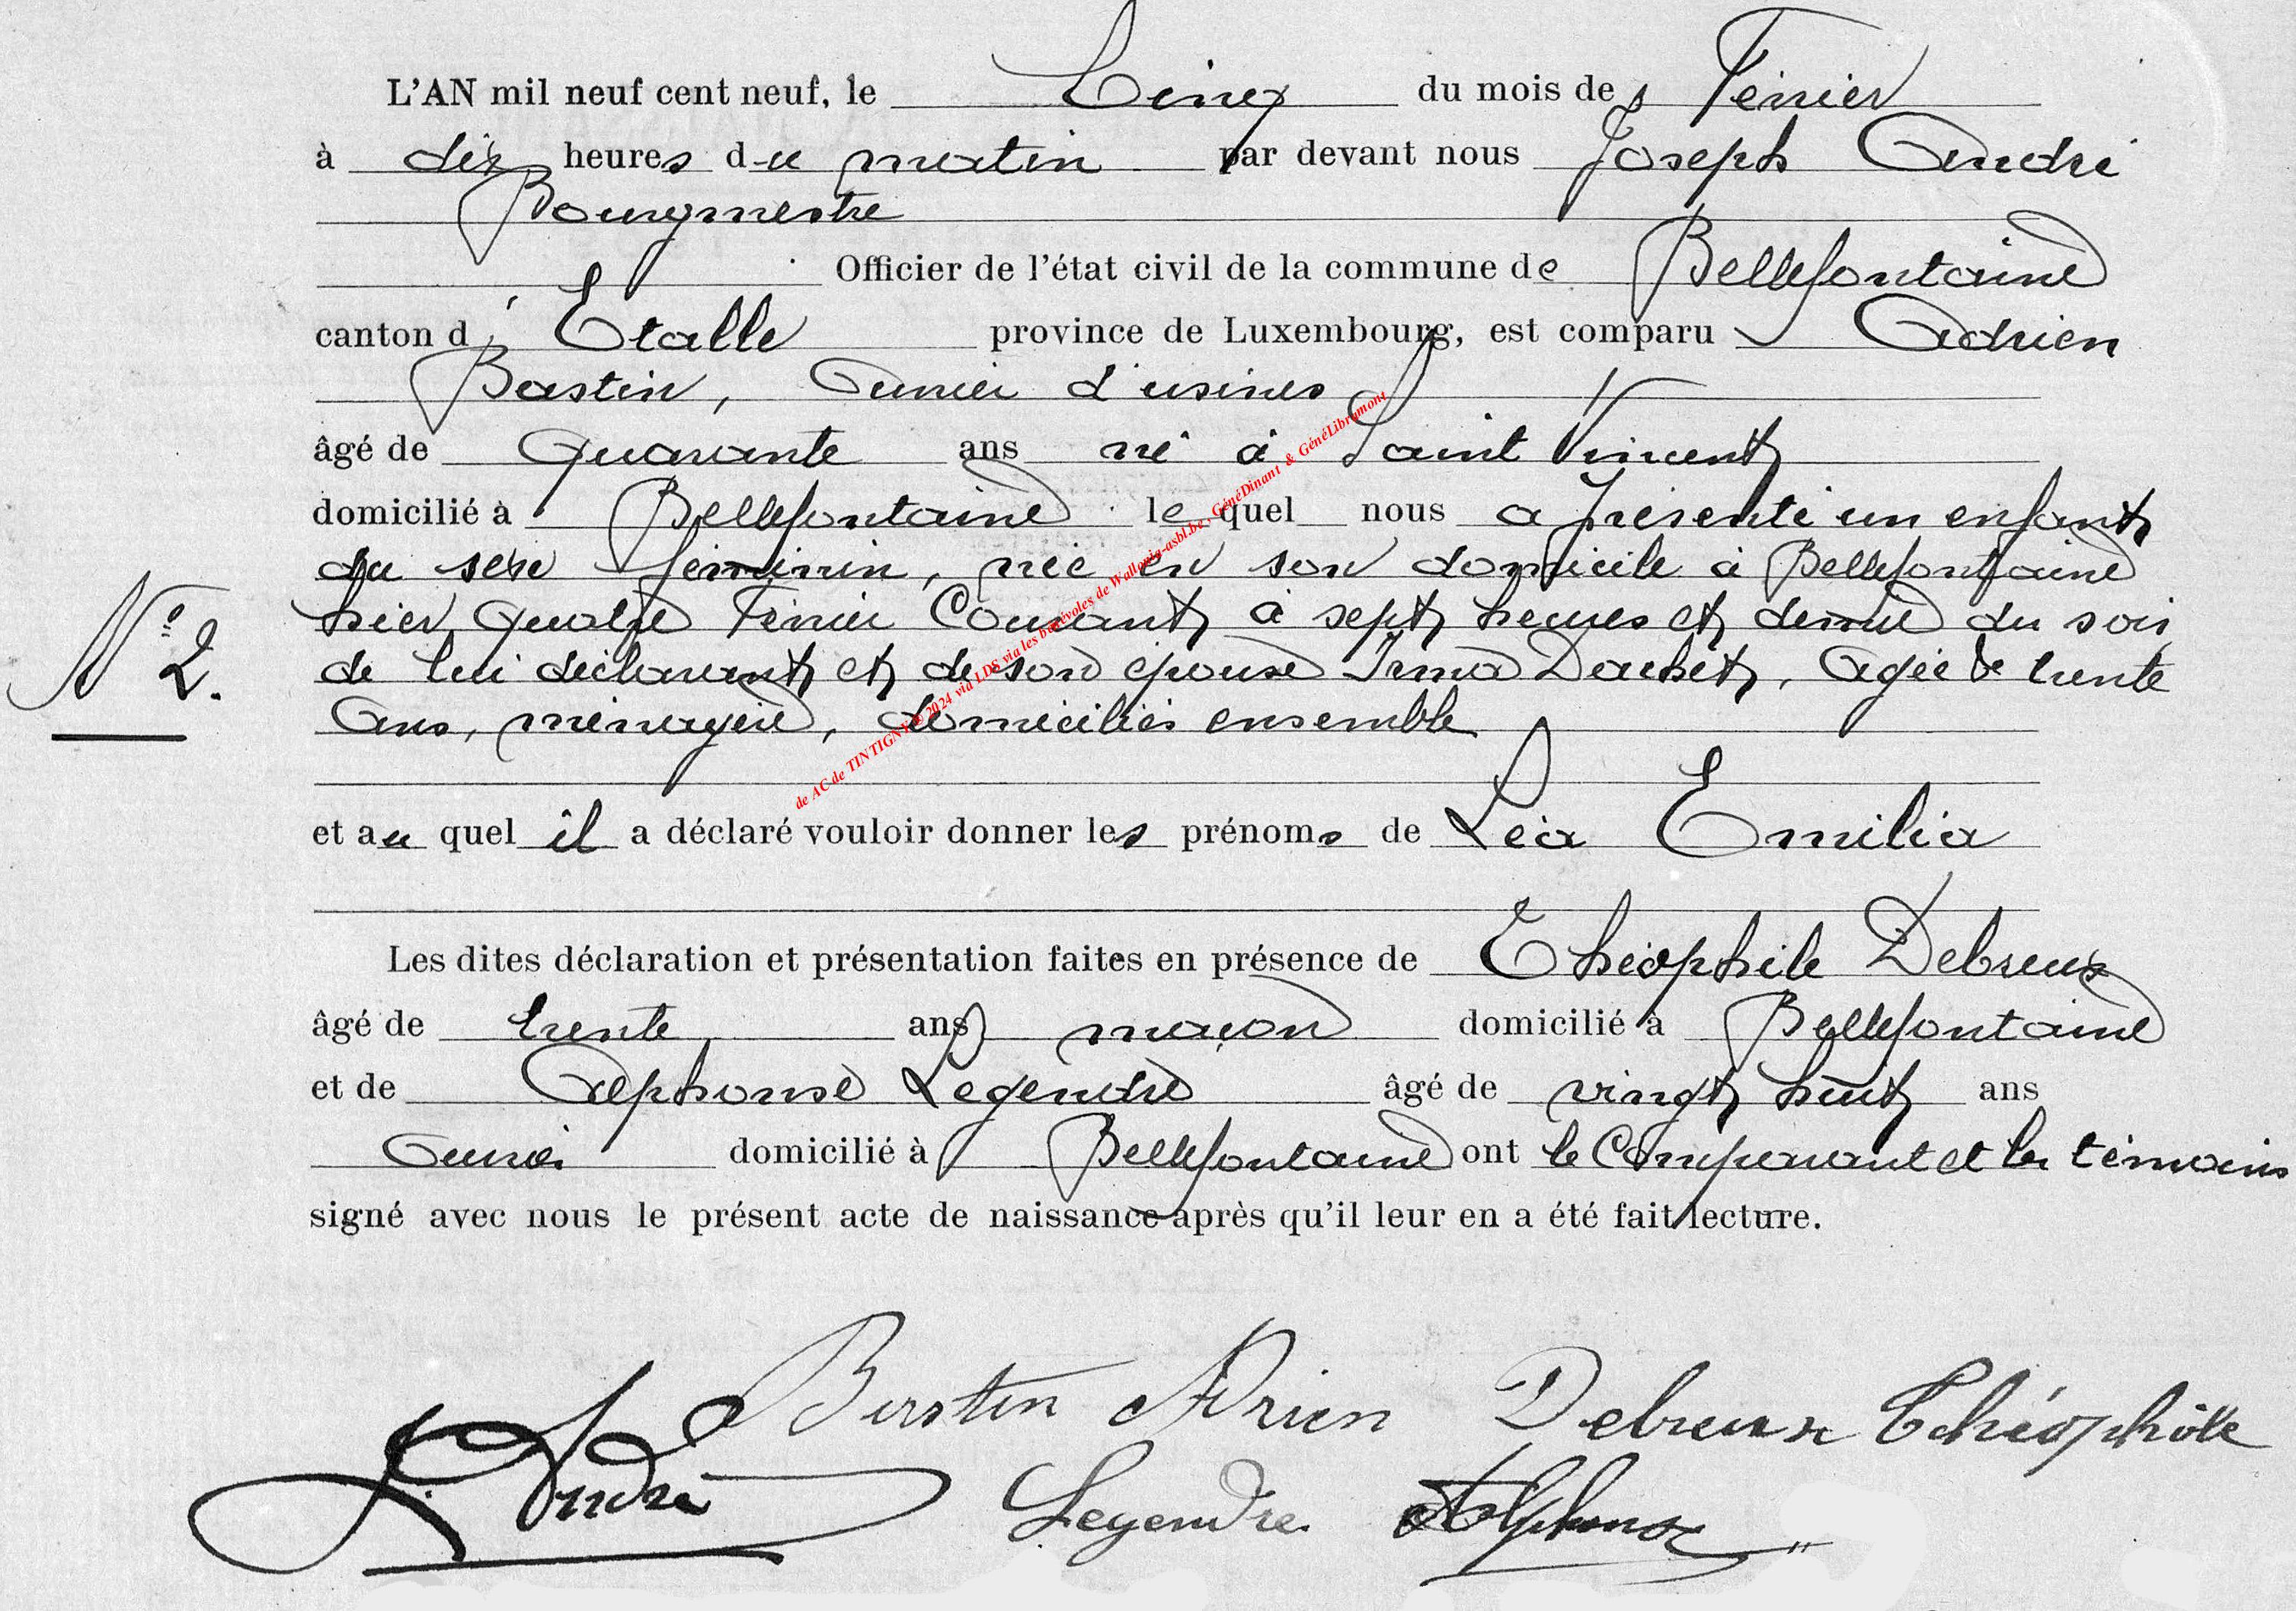 L'AN mil neuf cent neuf, le Cinq du mois de Février
à dix heures du matin par devant nous Joseph André
Bourgmestre
Officier de l'état civil de la commune de Bellefontaine
canton d'Etalle province de Luxembourg, est comparu Adrien
Bastin, Ouvrier d'usines
âgé de Quarante ans né à Saint Vincent
domicilié à Bellefontaine le quel nous a présenté un enfant
du sexe féminin, née en son domicile à Bellefontaine
hier quatre Février Courant à sept heures et demie du soir
N° 2.
de lui déclarant et de son épouse Irma Dachet, agée de trente
Ans, ménagère, domiciliés ensemble
et au quel il a déclaré vouloir donner les prénoms de Léa Emilia
Les dites déclaration et présentation faites en présence de Théophile Debreux
âgé de trente ans maçon domicilié à Bellefontaine
et de Alphonse Legendre âgé de vingt huit ans
Ouvrier domicilié à Bellefontaine ont le Comparant et les témoins
signé avec nous le présent acte de naissance après qu'il leur en a été fait lecture.
Bastin Adrien Debreux Théophile
J. André Legendre Alphonse
de AC de TINTIGNY © 2024 via LDS via les bénévoles de Wallonia-asbl.be, GénéDinant & GénéLibramont